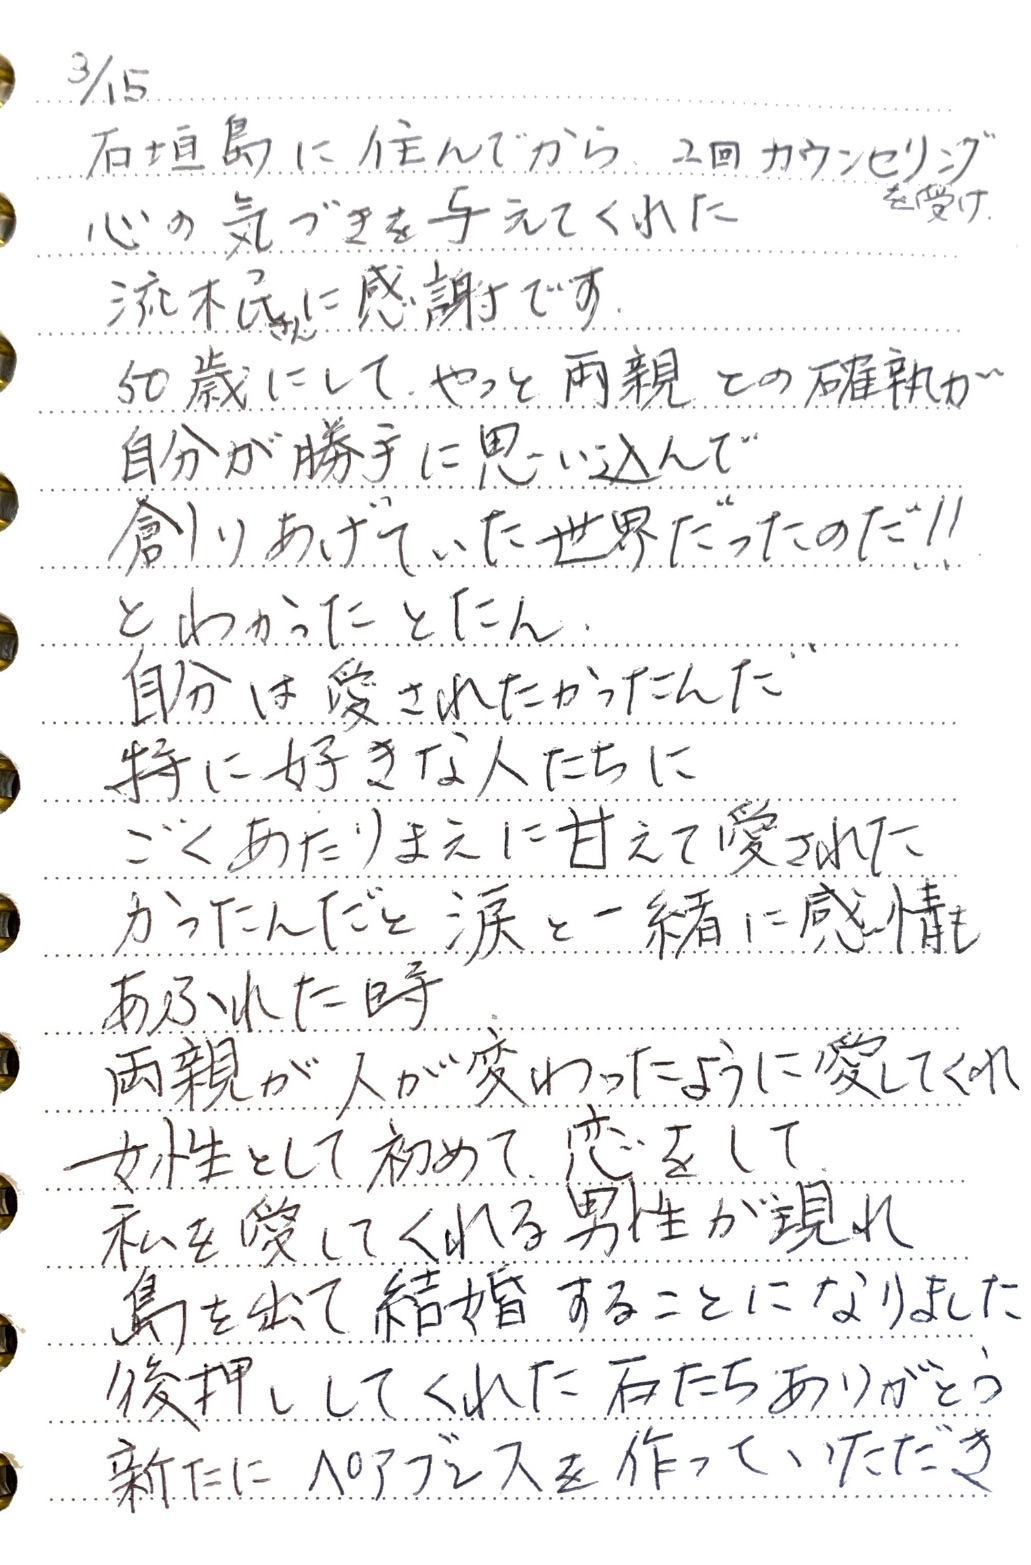 3/15
石垣島に住んでから、2回カウンセリング
を受け、
心の気づきを与えてくれた
流木民さんに感謝です。
50歳にして、やっと両親との確執が
自分が勝手に思い込んで
創りあげていた世界だったのだ!!
とわかったとたん、
自分は愛されたかったんだ
特に好きな人たちに
ごくあたりまえに甘えて愛された
かったんだと涙と一緒に感情も
あふれた時
両親が人が変わったように愛してくれ
女性として初めて、恋をして、
私を愛してくれる男性が現れ
島を出て結婚することになりました
後押ししてくれた石たちありがとう
新たにペアブレスを作っていただき